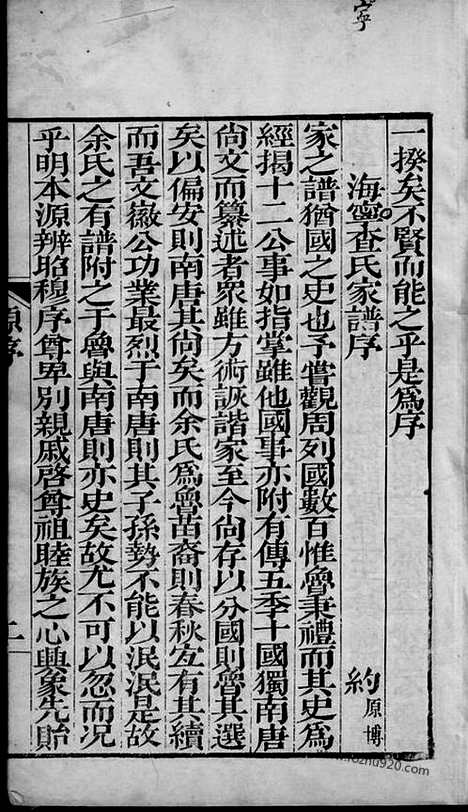 寧
一揆矣不賢而能之乎是爲序
海寧查氏家譜序
約原博
家之譜猶國之史也予嘗觀周列國數百惟魯秉禮而其史爲
經揭十二公事如指掌雖他國事亦附有傳五季十國獨南唐
尙文而纂述者衆雖方術詼諧家至今尙存以分國則魯其選
矣以偏安則南唐其尙矣而余氏爲魯苗裔則春秋宐有其續
而吾文徽公功業最烈于南唐則其子孫勢不能以泯泯是故
余氏之有譜附之于魯與南唐則亦史矣故尤不可以忽而况
乎明本源辨昭穆序尊卑別親戚啓尊祖睦族之心與象先貽
原序
二
www.fozhu920.com